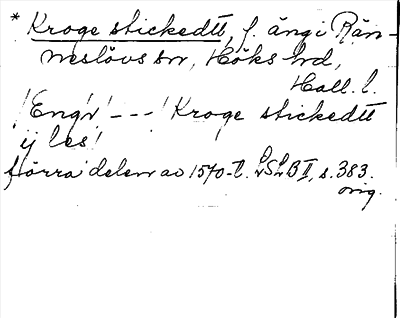 * Kroge stickedtt, f. äng i Rän-
neslövs sn, Höks hd,
Hall. l.
! Eng'r! - - - ! Kroge stickedtt
ij les!
förra delen av 1570-t. LSLB II, s. 383.
orig.